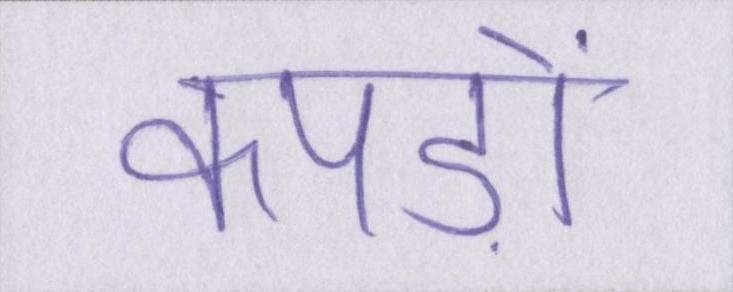 कपड़ों